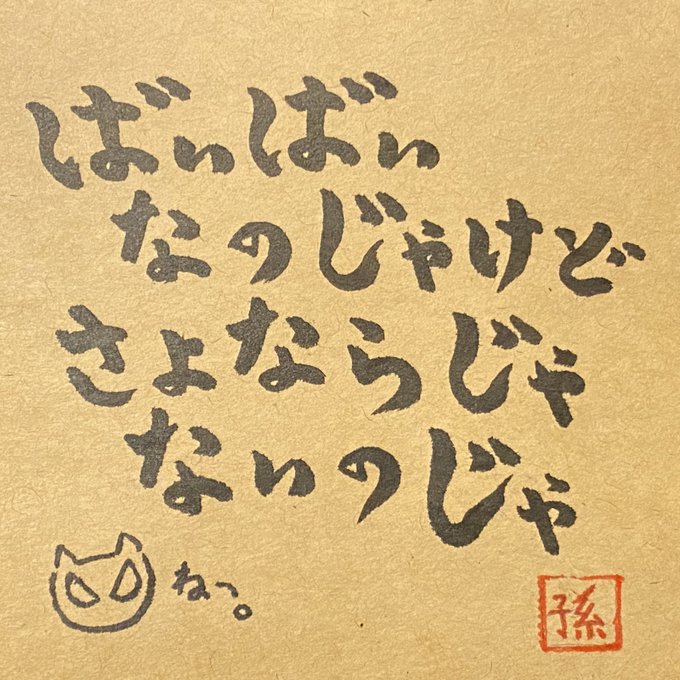 ばいばい
なのじゃけど
さよならじゃ
ないのじゃ
ねっ。
孫